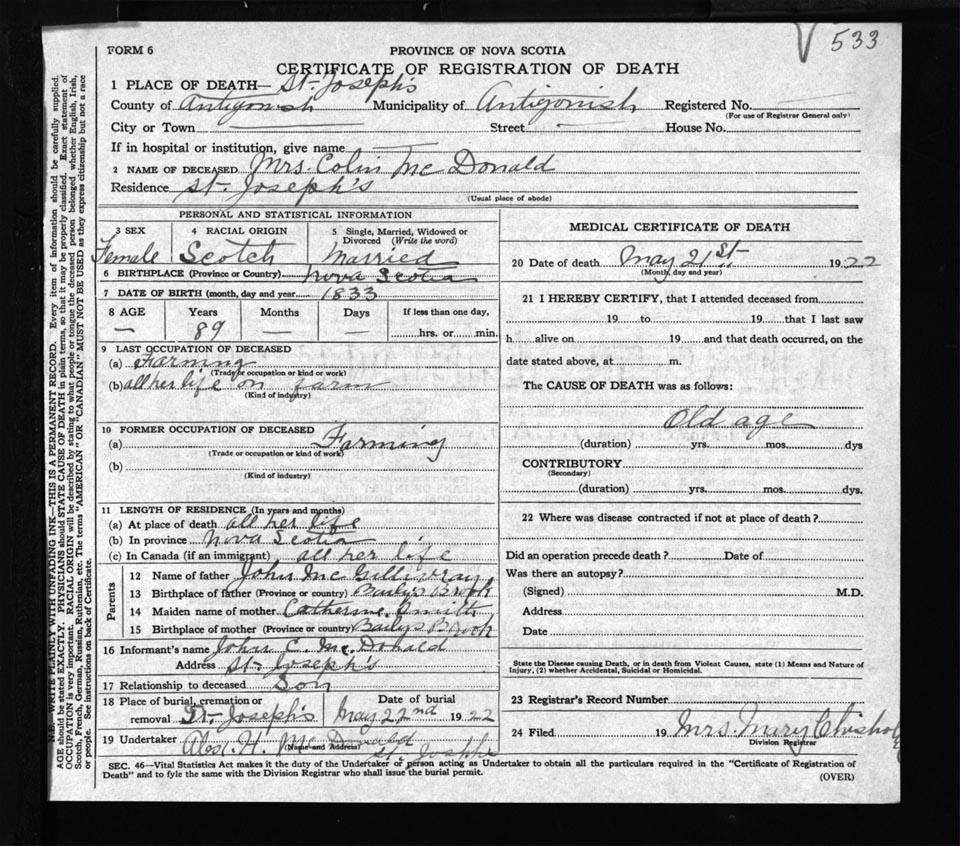 533
FORM 6
PROVINCE OF NOVA SCOTIA
CERTIFICATE OF REGISTRATION OF DEATH
1 PLACE OF DEATH— St. Joseph's
County of Antigonish Municipality of Antigonish Registered No.
(For use of Registrar General only)
City or Town — Street — House No.
If in hospital or institution, give name —
2 NAME OF DECEASED Mrs. Colin McDonald
Residence St. Joseph's
(Usual place of abode)
PERSONAL AND STATISTICAL INFORMATION
3 SEX 4 RACIAL ORIGIN 5 Single, Married, Widowed or Divorced (Write the word)
Female Scotch Married
6 BIRTHPLACE (Province or Country) Nova Scotia
7 DATE OF BIRTH (month, day and year) 1833
8 AGE Years Months Days If less than one day,
— 89 — — hrs. or min.
9 LAST OCCUPATION OF DECEASED
(a) Farming
(Trade or occupation or kind or work)
(b) all her life on farm
(Kind of industry)
10 FORMER OCCUPATION OF DECEASED
(a) Farming
(Trade or occupation or kind of work)
(b)
(Kind of industry)
11 LENGTH OF RESIDENCE (In years and months)
(a) At place of death all her life
(b) In province Nova Scotia
(c) In Canada (if an immigrant) all her life
Parents
12 Name of father John McGillivray
13 Birthplace of father (Province or country) Bailys Brook
14 Maiden name of mother Catherine Smith
15 Birthplace of mother (Province or country) Bailys Brook
16 Informant's name John C. McDonald
Address St. Joseph's
17 Relationship to deceased Son
18 Place of burial, cremation or removal St. Joseph's Date of burial May 22nd 1922
19 Undertaker Alex. H. McDonald
(Name and Address) St. Josephs
MEDICAL CERTIFICATE OF DEATH
20 Date of death May 21st 1922
(Month, day and year)
21 I HEREBY CERTIFY, that I attended deceased from
19 to 19 that I last saw
h alive on 19 and that death occurred, on the
date stated above, at m.
The CAUSE OF DEATH was as follows:
Old age
(duration) yrs. mos. dys
CONTRIBUTORY
(Secondary)
(duration) yrs. mos. dys.
22 Where was disease contracted if not at place of death?
Did an operation precede death? Date of
Was there an autopsy?
(Signed) M.D.
Address
Date
State the Disease causing Death, or in death from Violent Causes, state (1) Means and Nature of
Injury, (2) whether Accidental, Suicidal or Homicidal.
23 Registrar's Record Number
24 Filed 19 Mrs. Mary Chisholm
Division Registrar
SEC. 46—Vital Statistics Act makes it the duty of the Undertaker or person acting as Undertaker to obtain all the particulars required in the "Certificate of Registration of
Death" and to fyle the same with the Division Registrar who shall issue the burial permit.
(OVER)
N.B.—WRITE PLAINLY WITH UNFADING INK—THIS IS A PERMANENT RECORD. Every item of information should be carefully supplied.
AGE should be stated EXACTLY. PHYSICIANS should STATE CAUSE OF DEATH in plain terms, so that it may be properly classified. Exact statement of
OCCUPATION is very important. RACIAL ORIGIN will be described by stating to what people or tongue the deceased person belonged whether English, Irish,
Scotch, French, German, Russian, Ruthenian, etc. The terms "AMERICAN" OR "CANADIAN" MUST NOT BE USED as they express citizenship but not a race
or people. See instructions on back of Certificate.